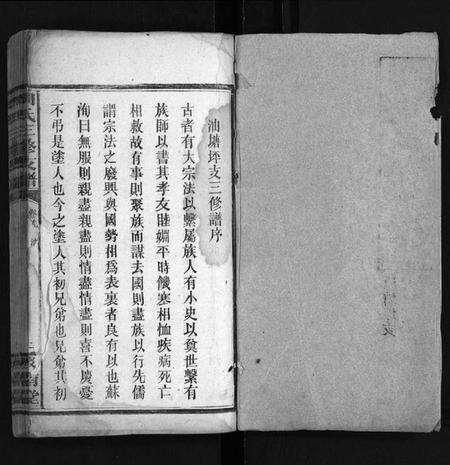 油塘坪支三修譜序
古者有大宗法以繫屬族人有小史以奠世繫有
族師以書其孝友睦婣平時饑寒相恤疾病死亡
相救故有事則聚族而謀去國則盡族以行先儒
謂宗法之廢興與國勢相為表裏者良有以也蘇
洵曰無服則親盡親盡則情盡情盡則喜不慶憂
不弔是塗人也今之塗人其初兄弟也兄弟其初
氏三修支譜